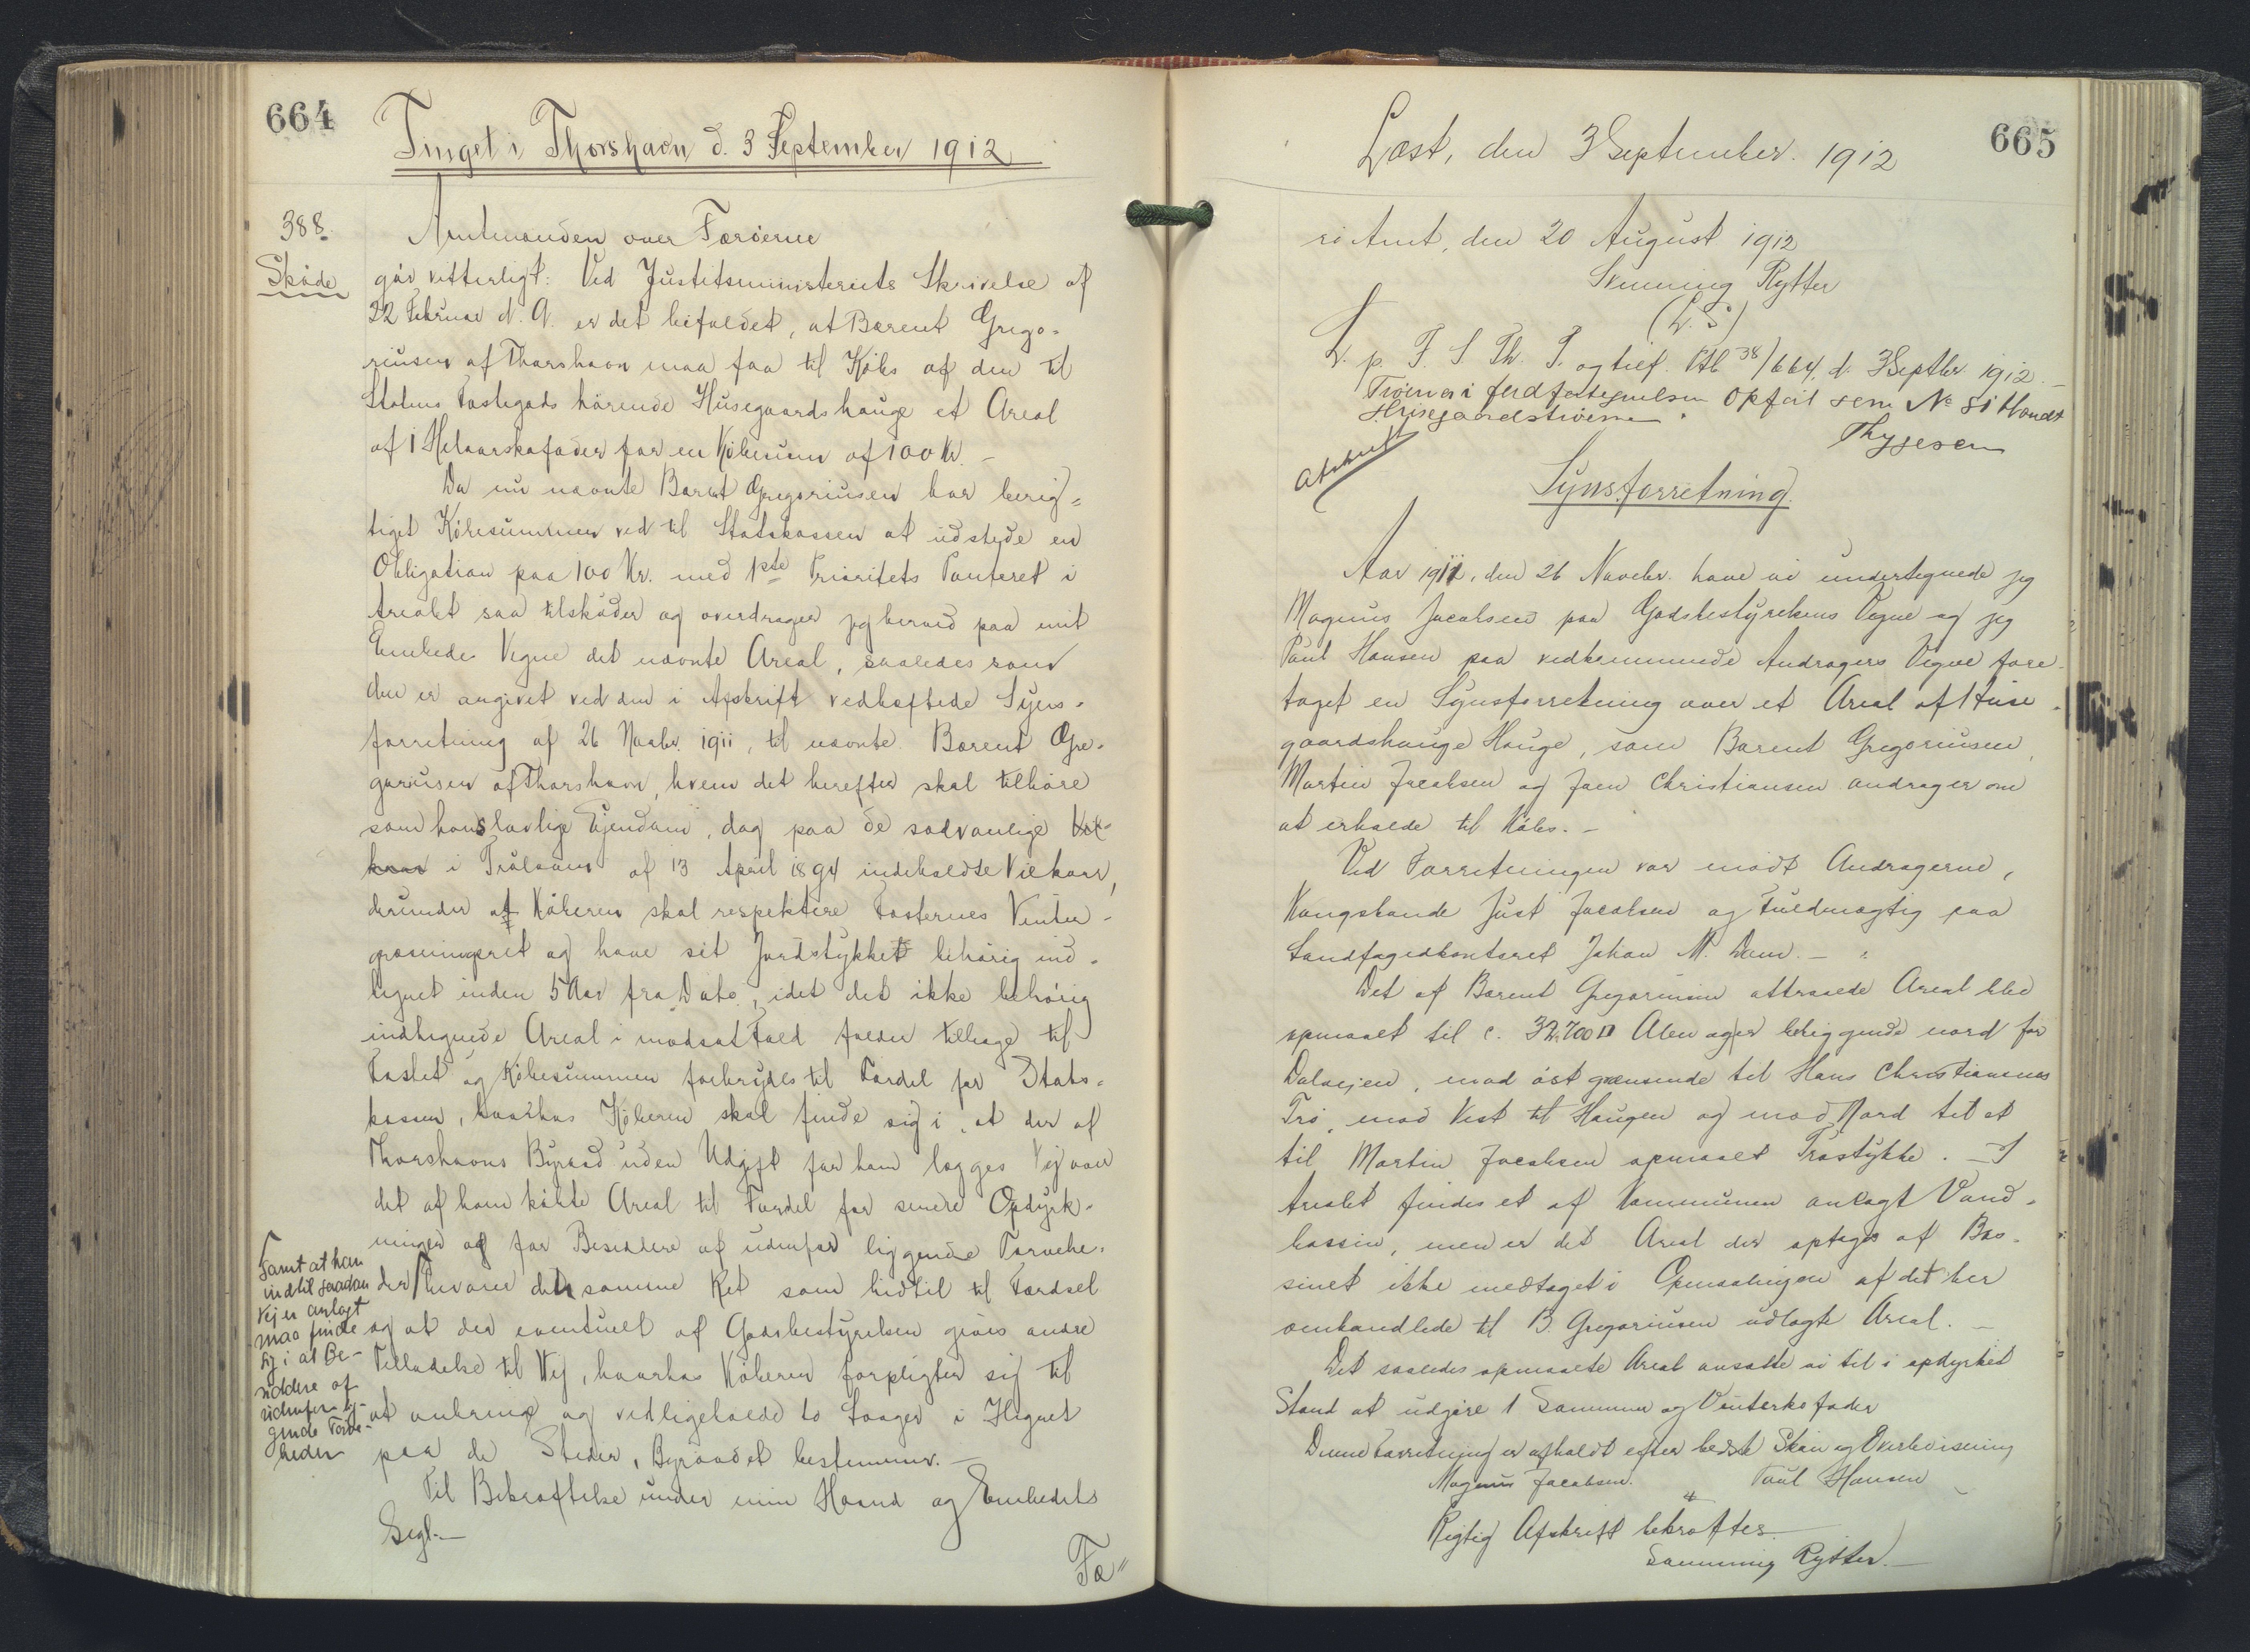 664
Tinget i Thorshavn d. 3 September 1912
388.
Skøde
Amtmanden over Færøerne
gør vitterligt: Ved Justitsministeriets Skrivelse af
22 Februar d. A. er det bifaldet, at Barent Grego=
riusen af Thorshavn maa faa til Købs af den til
Statens Fæstegods hørende Húsegaardshauge et Areal
af 1 Helaarskofoder for en Købesum af 100 Kr. –
Da nu nævnte Barent Gregoriusen har berig=
tiget Købesummen ved til Statskassen at udstede en
Obligation paa 100 Kr. med 1ste Prioritets Panteret i
Arealet saa tilskøder og overdrager jeg herved paa mit
Embeds Vegne det nævnte Areal, saaledes som
den er angivet ved den i Afskrift vedhæftede Syns=
forretning af 26 Novbr. 1911, til nævnte Barent Gre=
goriusen af Thorshavn, hvem det herefter skal tilhøre
som hans lovlige Ejendom, dog paa de sædvanlige Vil=
kaar i Tråloven af 13 April 1894 indeholdte Vilkaar,
derunder at Køberen skal respektere Fæsternes Vinter=
græsningsret og have sit Jordstykket behørig ind=
hegnet inden 5 Aar fra Dato, idet det ikke behørig
indhegnede Areal i modsat Fald falder tilbage til
Fæstet og Købesummen forbrydes til Fordel for Stats=
kassen, hvorhos Køberen skal finde sig i, at der af
Thorshavns Byraad uden Udgift for ham lægges Vej over
det af ham købte Areal til Fordel for senere Opdyrk=
ninger og for Besiddere af udenfor liggende Tørvehe=
der bevarer den samme Ret som hidtil til Færdsel
og at der eventuelt af Godsbestyrelsen gives andre
Tilladelse til Vej, hvorhos Køberen forpligter sig til
at anbringe og vedligeholde to Laager i Hegnet
paa de Steder, Byraadet bestemmer. –
Til Bekræftelse under min Haand og Embedets
Segl. –
Fæ"
samt at han
indtil saadan
Vej er anlagt
maa finde
sig i at Be-
siddere af
udenfor lig-
gende Tørve-
heder
665
Læst, den 3 September. 1912
rø Amt, den 20 August 1912
Svenning Rytter
(L. S.)
L. p. F. S. Th. T. og tilf. Ptb 38/664, d. 3 Septbr 1912. –
Trøerne i
Opført som No 81
Húsegaardstrøerne
Thygesen
Afskrift
Synsforretning.
Aar 1911, den 26 Novebr. have vi undertegnede jeg
Magnus Jacobsen paa Godsbestyrelsens Vegne og jeg
Paul Hansen paa vedkommende Andragers Vegne fore=
taget en Synsforretning over et Areal af Húse=
gaardshauge Hauge, som Barent Gregoriusen,
Martin Jacobsen og Joen Christiansen andrager om
at erholde til Købs. –
Ved Forretningen var mødt Andragerne,
Kongsbonde Just Jacobsen og Fuldmægtig paa
Landfogedkontoret Johan M. Dam. –
Det af Barent Gregoriusen attraaede Areal blev
opmaalt til c. 32,700 □ Alen og er beliggende nord for
Dalvejen, mod øst grænsende til Hans Christiansens
Trø, mod Vest til Haugen og mod Nord til et
til Martin Jacobsen opmaalt Trøstykke. – I
Arealet findes et af Kommunen anlagt Vand=
bassin, men er det Areal der optages af Bas=
sinet ikke medtaget i Opmaalingen af det her
omhandlede til B. Gregoriusen udlagte Areal. –
Det saaledes opmaalte Areal ansatte vi til i opdyrket
Stand at udgøre 1 Sommer og Vinterkofoder
Denne Forretning er afholdt efter bedste Skøn og Overbevisning
Magnus Jacobsen. Paul Hansen
Rigtig Afskrift bekræftes
Svenning Rytter. –